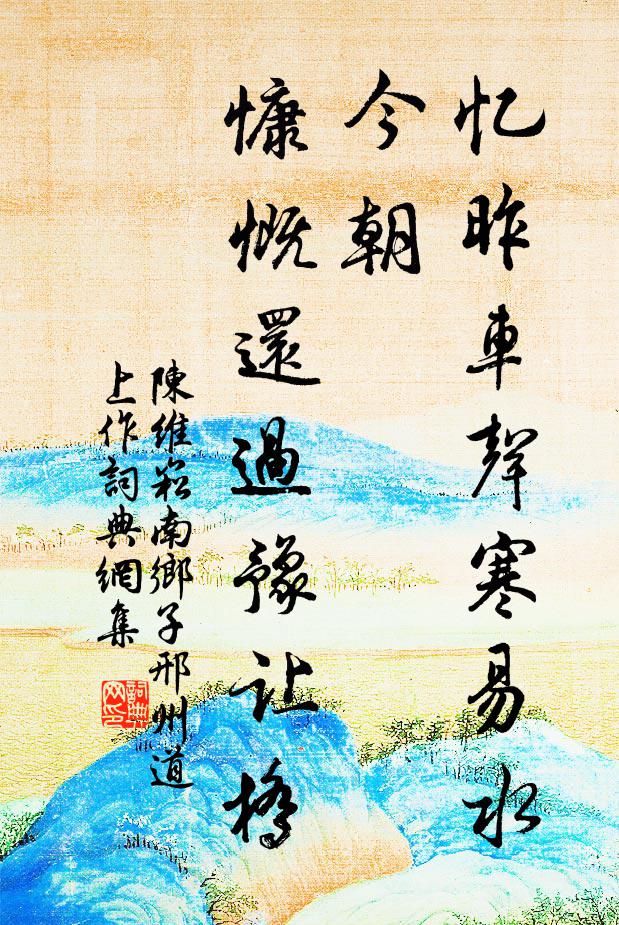 忆昨車聲寒易水
今朝
慷慨還過豫让橋
陳維崧南鄉子邢州道
上作詞典網集
詞典
网印